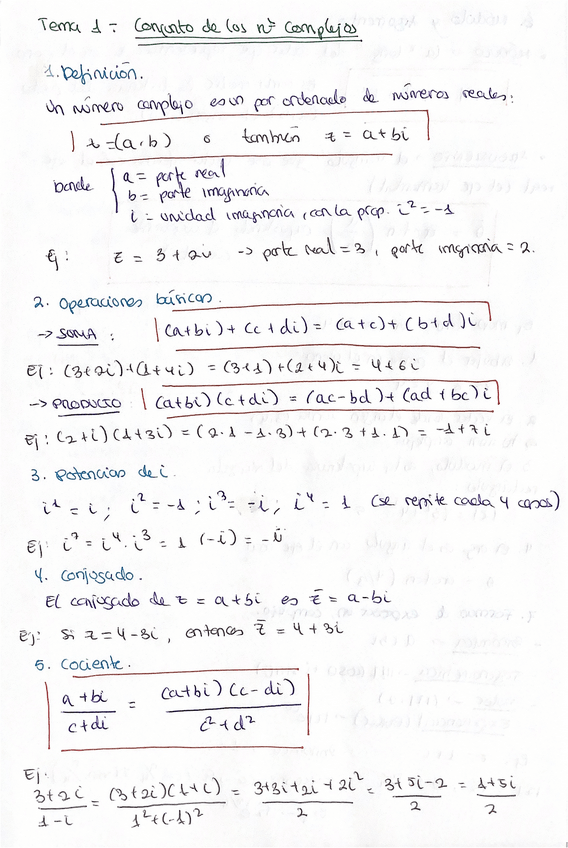 Tema 1 = Conjunto de los nº complejos
1. Definición.
Un número complejo es un par ordenado de números reales:
z = (a, b) o también z = a + bi
Donde { a = parte real
b = parte imaginaria
i = unidad imaginaria, con la prop. i² = -1
Ej: z = 3 + 2i -> parte real = 3, parte imaginaria = 2.
2. Operaciones básicas.
-> SUMA : (a+bi) + (c+di) = (a+c) + (b+d)i
Ej: (3+2i)+(1+4i) = (3+1)+(2+4)i = 4+6i
-> PRODUCTO (a+bi)(c+di) = (ac-bd)+(ad+bc)i
Ej: (2+i)(1+3i) = (2·1 - 1·3) + (2·3 + 1·1) = -1+7i
3. Potencias de i.
i¹ = i ; i² = -1 ; i³ = -i ; i⁴ = 1 (se repite cada 4 casos)
Ej: i⁷ = i⁴ · i³ = 1 (-i) = -i
4. Conjugado.
El conjugado de z = a+bi es z̄ = a-bi
Ej: Si z = 4-3i, entonces z̄ = 4+3i
5. Cociente.
(a+bi)/(c+di) = (a+bi)(c-di)/(c²+d²)
Ej:
(3+2i)/(1-i) = (3+2i)(1+i)/(1²+(-1)²) = (3+3i+2i+2i²)/2 = (3+5i-2)/2 = (1+5i)/2